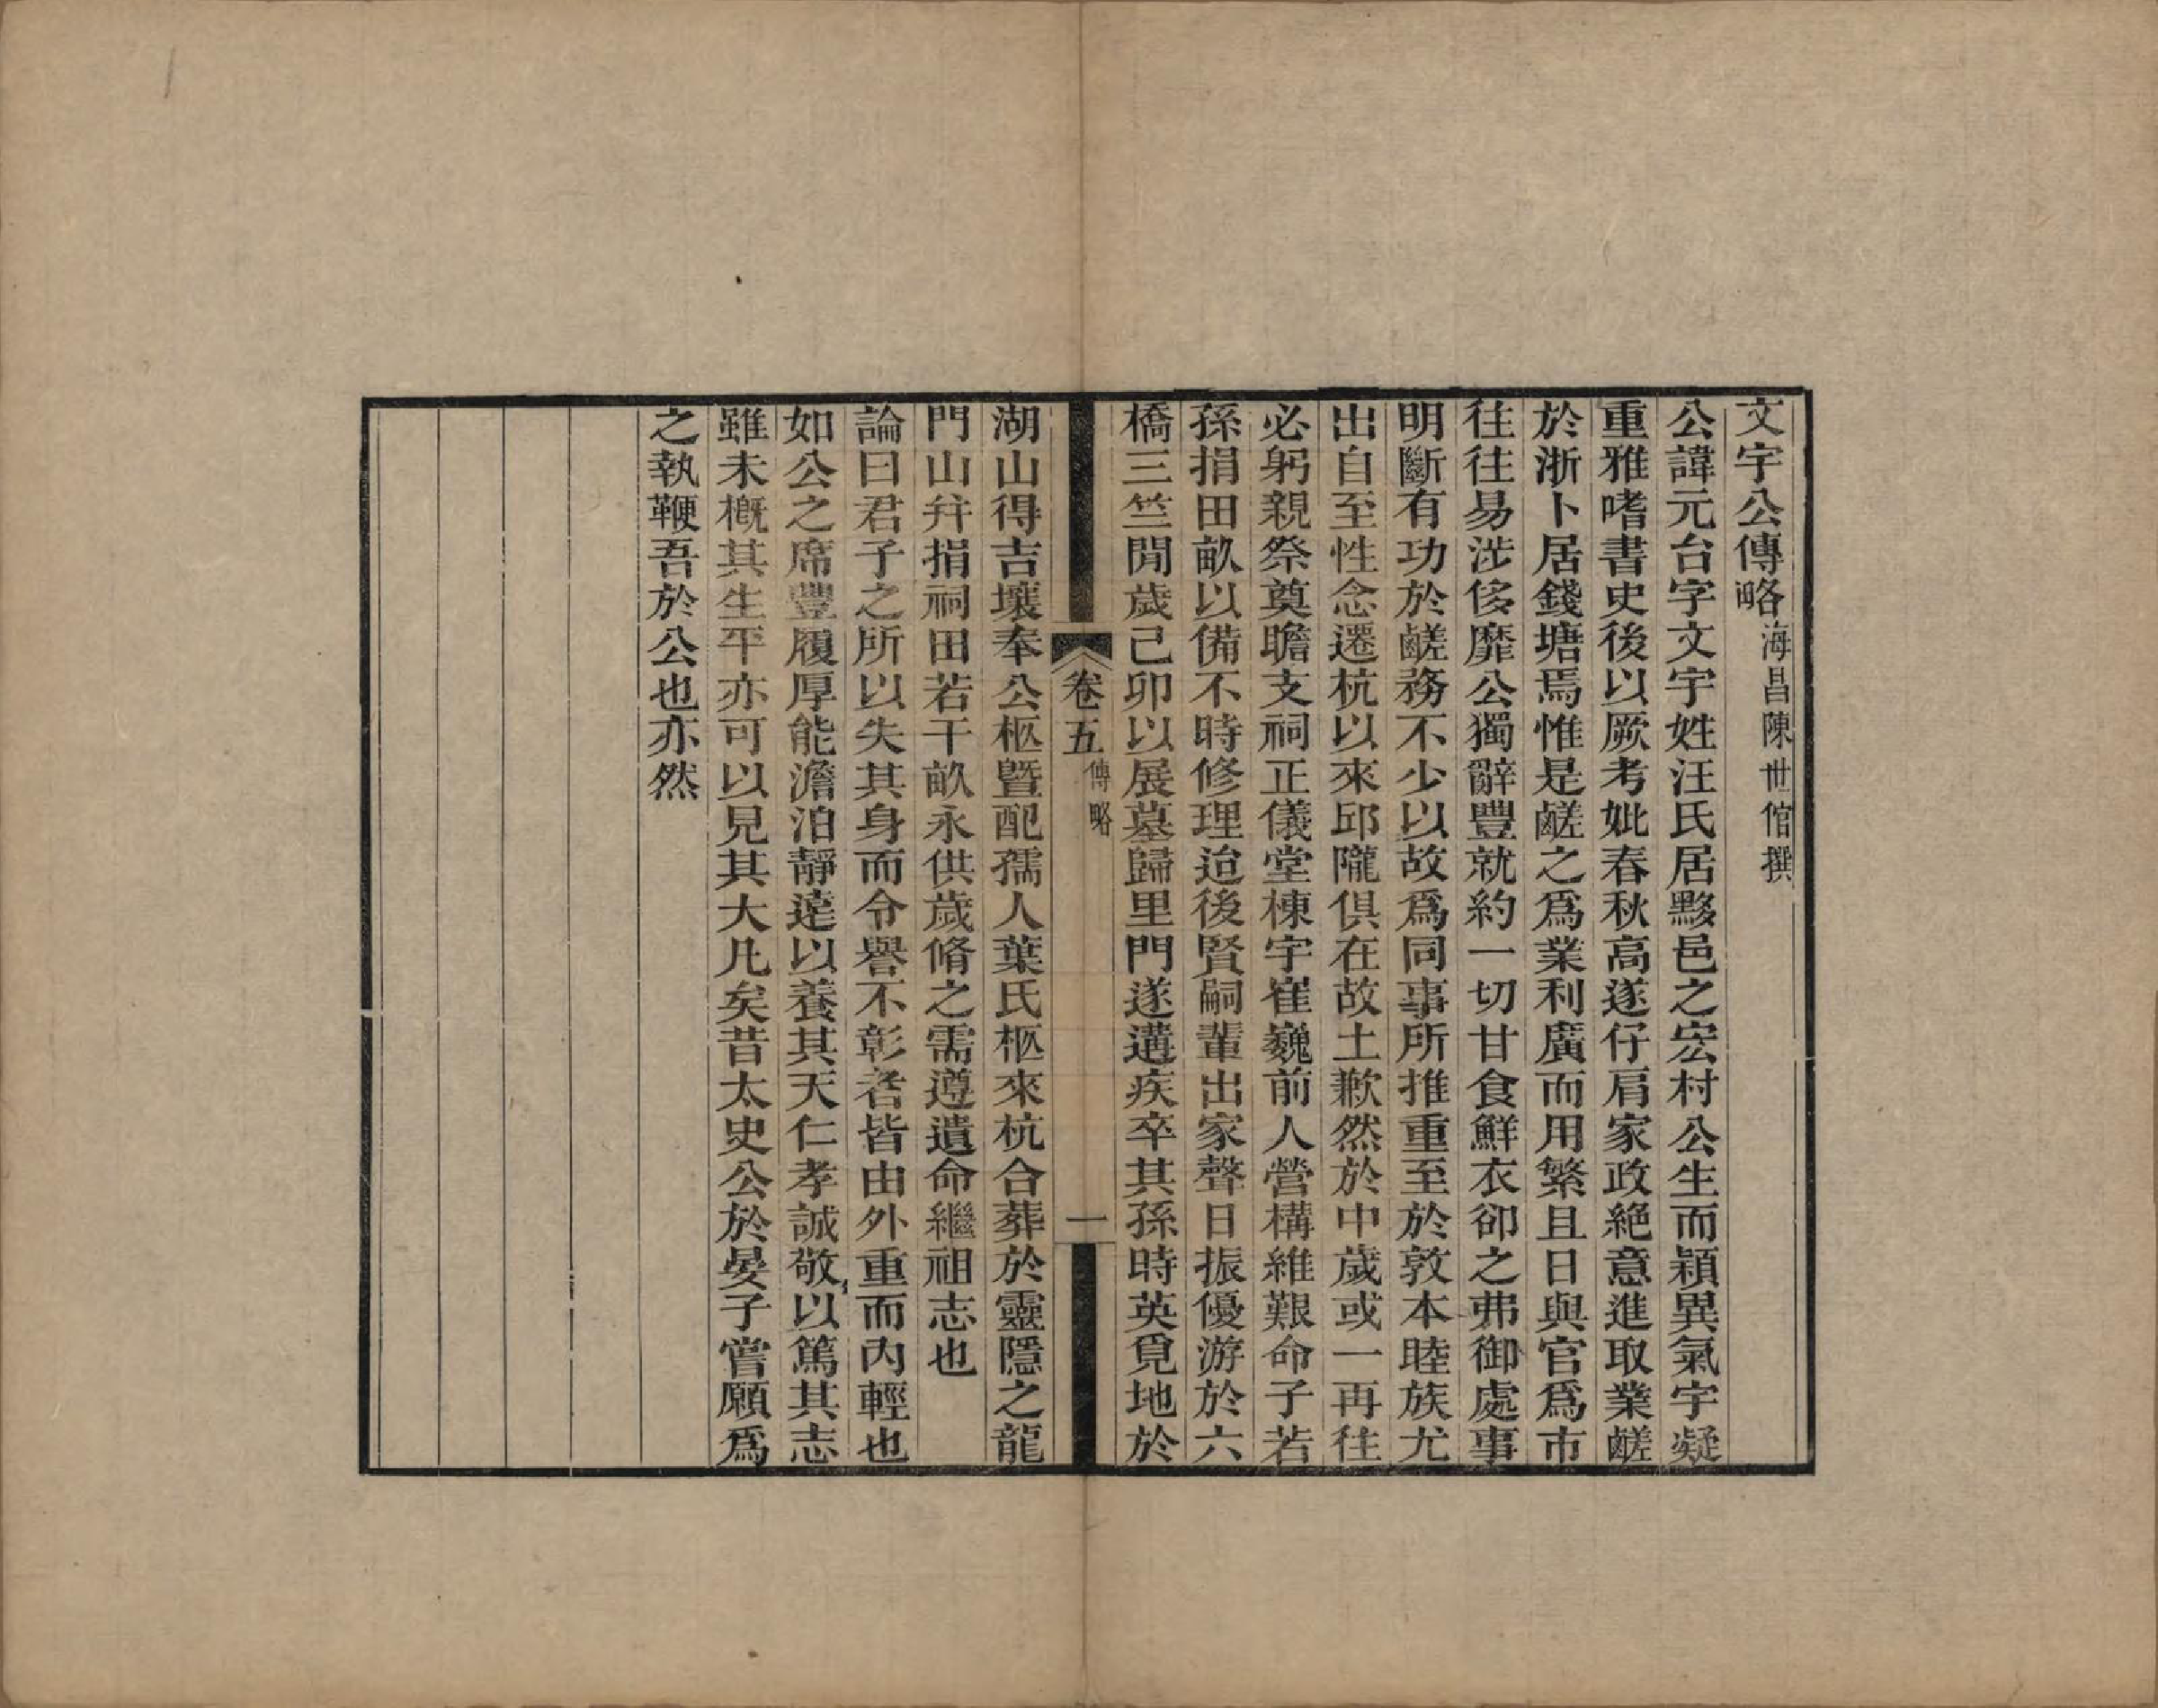 文字公傳略海昌陳世倌撰
公諱元台字文宇姓汪氏居黟邑之宏村公生而穎異氣宇凝
重雅嗜書史後以厥考妣春秋高遂仔肩家政絕意進取業鹺
於浙卜居錢塘焉惟是鹺之爲業利廣而用繁且日與官爲市
往往易涉侈靡公獨辭豐就約一切甘食鮮衣卻之弗御處事
明斷有功於鹺務不少以故爲同事所推重至於敦本睦族尤
出自至性念遷杭以來邱隴俱在故土歉然於中歲或一再往
必躬親祭奠瞻支祠正儀堂棟宇崔巍前人營構維艱命子若
孫捐田畝以備不時修理迨後賢嗣輩出家聲日振優游於六
橋三竺閒歲己卯以展墓歸里門遂遘疾卒其孫時英覓地於
卷五傳略 一
湖山得吉壤奉公柩暨配孺人葉氏柩來杭合葬於靈隱之龍
門山幷捐祠田若干畝永供歲脩之需遵遺命繼祖志也
論曰君子之所以失其身而令譽不彰者皆由外重而內輕也
如公之席豐履厚能澹泊靜遠以養其天仁孝誠敬以篤其志
雖未槪其生平亦可以見其大凡矣昔太史公於晏子嘗願爲
之執鞭吾於公也亦然